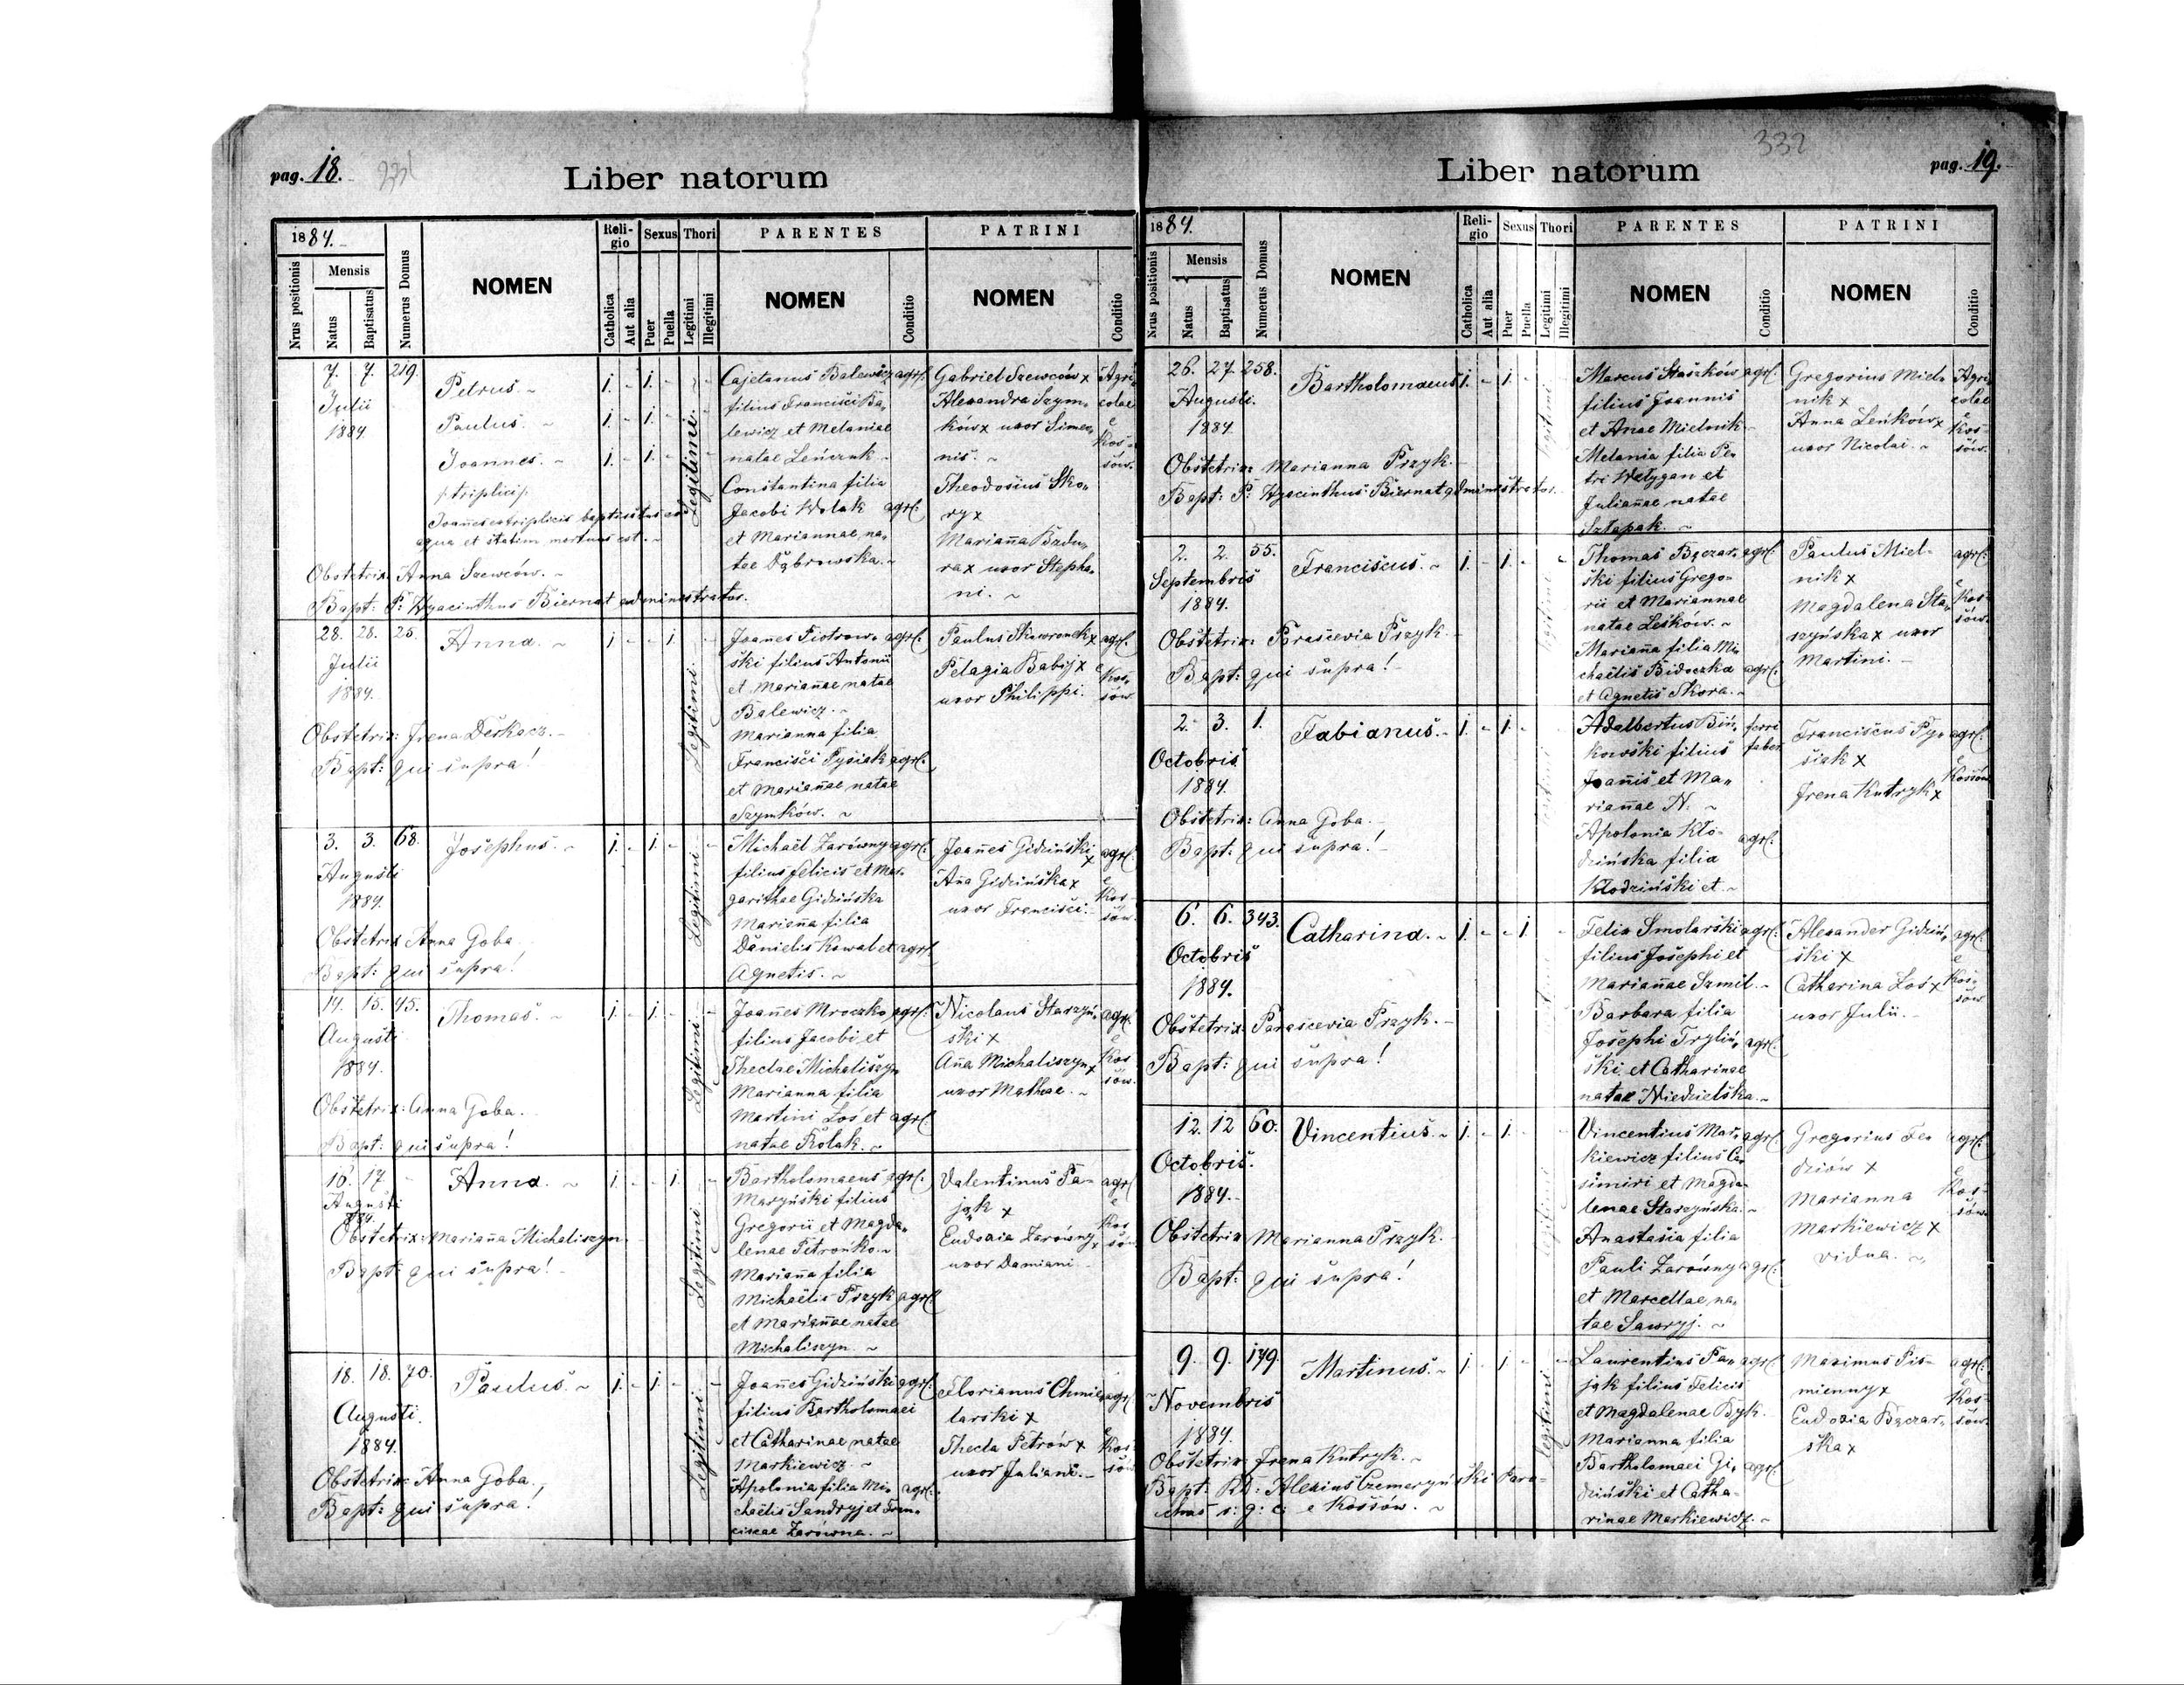 pag. 18.
Liber natorum
1884.
Nrus positionis
Mensis
Natus
Baptisatus
Numerus Domus
NOMEN
Religio
Catholica
Aut alia
Sexus
Puer
Puella
Thori
Legitimi
Illegitimi
PARENTES
NOMEN
Conditio
PATRINI
NOMEN
Conditio
7. 7. 219.
Julii
1884.
Petrus. ~
Paulus. ~
Joannes. ~
/: triplici :/
Joannes ex triplicis baptisatus ex
aqua et statim mortuus est. ~
Obstetrix Anna Szewców. ~
Bapt: P: Hyacinthus Biernat administrator.
1. - 1. - -
1. - 1. - -
1. - 1. - -
Legitimi.
Cajetanus Balewicz agrl:
filius Francisci Ba„
lewicz et Melaniae
natae Leńczuk -
Constantina filia
Jacobi Wolak agrl:
et Mariannae na„
tae Dąbrowska. ~
Gabriel Szewców x
Alexandra Szym„
ków x uxor Simeo„
nis. ~
Theodosius Sko„
ry x
Marianna Bzdu„
ra x uxor Stepha„
ni. ~
Agri
colae
e
Kos-
sów.
28. 28. 25.
Julii
1884.
Anna. ~
Obstetrix: Irena Derkacz. ~
Bapt: qui supra!
1 - - 1. -
Legitimi
Joanes Piotrow„ agrl:
ski filius Antonii
et Mariañae natae
Balewicz. ~
Marianna filia
Francisci Pysiak agrl:
et Mariañae natae
Szymków. ~
Paulus Skowronek x
Pelagia Babij x
uxor Philippi.
agrl:
e
Kos„
sów
3. 3. 68.
Augusti
1884.
Josephus. ~
Obstetrix Anna Goba
Bapt: qui supra!
1. - 1. - -
Legitimi
Michaël Zarówny agrl:
filius Felicis et Mar„
garithae Gidzińska
Mariañna filia
Danielis Kowal et agrl.
Agnetis. ~
Joañes Gidziński x
Aña Gidzińska x
uxor Francisci. -
agrl:
e
Kos-
sów.
14. 15. 45.
Augusti
1884.
Thomas. ~
Obstetrix: Anna Goba.
Bapt: qui supra!
1. - 1. - -
Legitimi
Joañes Mroczko agrl:
filius Jacobi et
Theclae Michaliszyn
Marianna filia
Martini Łoś et agrl:
natae Rolak. ~
Nicolaus Starzyń„
ski x
Aña Michaliszyn x
uxor Mathae. ~
agrl:
e
Kos
sów.
16. 17. -
Augusti
1884.
Anna. ~
Obstetrix: Mariaña Michaliszyn
Bapt: qui supra! -
1. - - 1. -
Legitimi
Bartholomaeus agrl:
Maryński filius
Gregorii et Magda„
lenae Petrońko. ~
Mariaña filia
Michaëlis Przyk agrl:
et Mariañae natae
Michaliszyn. ~
Valentinus Pa-
jąk x
Eudoxia Zarówny x
uxor Damiani
agrl
e
Kos
sów
18. 18. 70.
Augusti.
1884.
Paulus. ~
Obstetrix: Anna Goba.,
Bapt: qui supra!
1. - 1. - -
Legitimi
Joañes Gidziński agrl:
filius Bartholomaei
et Catharinae natae
Markiewicz. ~
Apolonia filia Mi„ agrl:
chaëlis Sandryj et Fran„
ciscae Zarówna. ~
Florianus Chmie„
larski x
Thecla Petrów x
uxor Juliani. -
agrl
e
Kos-
sów
332
pag. 19.
Liber natorum
1884.
Nrus positionis
Mensis
Natus
Baptisatus
Numerus Domus
NOMEN
Religio
Catholica
Aut alia
Sexus
Puer
Puella
Thori
Legitimi
Illegitimi
PARENTES
NOMEN
Conditio
PATRINI
NOMEN
Conditio
26. 27. 258.
Augusti.
1884.
Bartholomaeus
Obstetrix: Marianna Przyk. -
Bapt: P: Hyacinthus Biernat administrator.
1. - 1. -
Marcus Staszków agrl:
filius Joannis
et Anae Mielnik -
Melania filia Pe„
tri Wełygan et
Juliañae natae
Sztapak. ~
Gregorius Miel„
nik x
Anna Leńków x
uxor Nicolai. ~
Agri
colae
e
Kos-
sów.
2. 2. 55.
Septembris
1884.
Franciscus. ~
Obstetrix: Parascevia Przyk. -
Bapt: qui supra! -
1. - 1. - -
Thomas Bęczar„ agrl:
ski filius Grego„
rii et Mariannae
natae Leśków. ~
Mariaña filia Mi„
chaëlis Bidoczka agrl:
et Agnetis Skora. ~
Paulus Miel-
nik x
Magdalena Sta„
szyńska x uxor
Martini. -
agrl:
e
Kos-
sów.
2. 3. 1.
Octobris
1884.
Fabianus. ~
Obstetrix: Anna Goba. -
Bapt: qui supra! -
1. - 1. - -
Adalbertus Biń„ ferri
kowski filius faber
Joañis et Ma„
riañae N. ~
Apolonia Kło- agrl:
dzińska filia
Kłodziński et. ~
Franciscus Py„
siak x
Irena Kutryk x
agrl:
e
Kossów
6. 6. 343.
Octobris
1884.
Catharina. ~
Obstetrix Parascevia Przyk. -
Bapt: qui supra!
1. - - 1. -
Felix Smolarski agrl:
filius Josephi et
Mariañae Szmil. ~
Barbara filia
Josephi Tryliń„ agrl:
ski et Catharinae
natae Niedzielska. ~
Alexander Gidziń„
ski x
Catharina Łoś x
uxor Julii. -
agrl:
e
Kos-
sów
12. 12 60.
Octobris.
1884. -
Vincentius. ~
Obstetrix Marianna Przyk.
Bapt: qui supra!
1. - 1. -
Vincentius Mar„ agrl:
kiewicz filius Ca„
simiri et Magda-
lenae Starzyńska. ~
Anastasia filia
Pauli Zarówny agrl:
et Marcellae na„
tae Sawryj. ~
Gregorius Fe„
dziów x
Marianna
Markiewicz x
vidua. ~
agrl:
e
Kos-
sów.
9. 9. 179.
Novembris
1884.
Martinus. ~
Obstetrix Irena Kutryk. ~
Bapt: RD: Alexius Czemeryński Paro-
chus r: g: c: e Kossów. ~
1. - 1 - -
legitimi
Laurentius Pa„ agrl:
jąk filius Felicis
et Magdalenae Byk.
Marianna filia
Bartholomaei Gi„ agrl:
dziński et Catha-
rinae Markiewicz. ~
Maximus Pis-
mienny x
Eudoxia Bęczar„
ska x
agrl:
e
Kos-
sów.